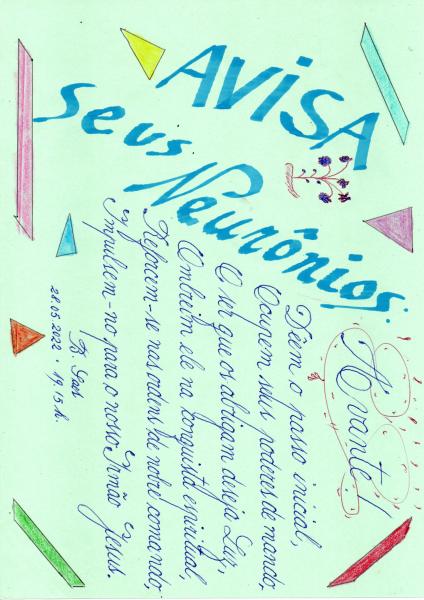 AVISA
seus
Neurônios:
Avante!
Dêem o passo inicial,
Ocupem seus poderes de mando,
O ser que os abrigam deseja Luz,
Ombreiem ele na conquista espiritual,
Reforcem-se nas ordens de nobre comando,
Impulsem-no para o nosso Irmão Jesus.
28.05.2022 · 19,15 h.